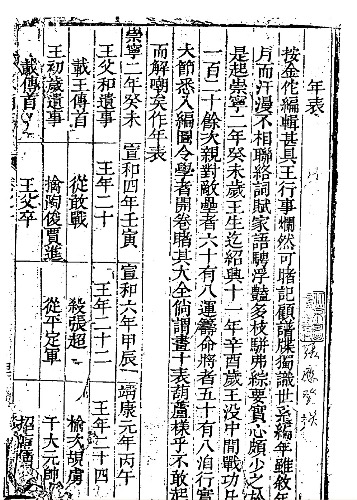 張應登撰
年表
按金佗編輯甚具王行事爛然可睹記顧譜牒獨識世系編年雖敘年
月而汗漫不相聯絡詞賦家語浮豔多枝駢弗綜要實心頗少之
是起崇寧二年癸未歲王生迄紹興十一年辛酉歲王沒中間戰功
一百二十餘次親對敵壘者六十有八運籌命將者五十有八洎行實
大節悉入編圖令學者開卷睹其大全倘謂畫十表葫蘆樣乎不敢起
而解嘲矣作年表
崇寧二年癸未 宣和四年壬寅 宣和六年甲辰 靖康元年丙午
王父和遺事 王年二十 王年二十二 王年二十四
載王傳首 從敢戰 殺張超 胡虜
王初歲遺事 擒陶俊賈進 從平定軍 于大元帥
載傳首 王父卒 招